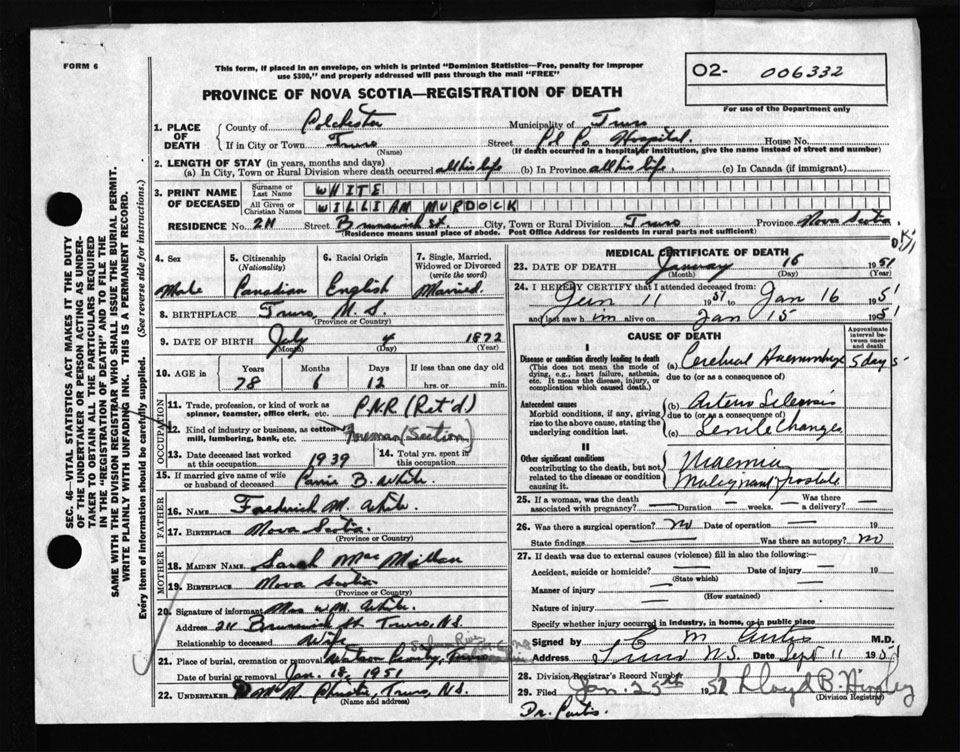 FORM 6
This form, if placed in an envelope, on which is printed "Dominion Statistics—Free, penalty for improper
use $300," and properly addressed will pass through the mail "FREE"
02- 006332
For use of the Department only
PROVINCE OF NOVA SCOTIA—REGISTRATION OF DEATH
SEC. 46—VITAL STATISTICS ACT MAKES IT THE DUTY
OF THE UNDERTAKER OR PERSON ACTING AS UNDER-
TAKER TO OBTAIN ALL THE PARTICULARS REQUIRED
IN THE "REGISTRATION OF DEATH" AND TO FILE THE
SAME WITH THE DIVISION REGISTRAR WHO SHALL ISSUE THE BURIAL PERMIT.
WRITE PLAINLY WITH UNFADING INK. THIS IS A PERMANENT RECORD.
Every item of information should be carefully supplied. (See reverse side for instructions.)
1. PLACE OF DEATH County of Colchester Municipality of Truro
If in City or Town Truro (Name) Street Hospital. House No.
(If death occurred in a hospital or institution, give the name instead of street and number)
2. LENGTH OF STAY (in years, months and days)
(a) In City, Town or Rural Division where death occurred all his life (b) In Province all his life. (c) In Canada (if immigrant)
3. PRINT NAME OF DECEASED Surname or Last Name WHITE
All Given or Christian Names WILLIAM MURDOCK
RESIDENCE No. 211 Street Brunswick St. City, Town or Rural Division Truro Province Nova Scotia.
(Residence means usual place of abode. Post Office Address for residents in rural parts not sufficient)
4. Sex Male
5. Citizenship (Nationality) Canadian
6. Racial Origin English
7. Single, Married, Widowed or Divorced (write the word) Married.
8. BIRTHPLACE Truro, N.S. (Province or Country)
9. DATE OF BIRTH July (Month) 4 (Day) 1872 (Year)
10. AGE in Years 78 Months 6 Days 12 If less than one day old hrs. or min.
OCCUPATION
11. Trade, profession, or kind of work as spinner, teamster, office clerk, etc. (Ret'd)
12. Kind of industry or business, as cotton mill, lumbering, bank, etc. Foreman (Section)
13. Date deceased last worked at this occupation 1939
14. Total yrs. spent in this occupation
15. If married give name of wife or husband of deceased Carrie B. White.
FATHER
16. NAME Frederick M. White.
17. BIRTHPLACE Nova Scotia. (Province or Country)
MOTHER
18. MAIDEN NAME Sarah MacMillan
19. BIRTHPLACE Nova Scotia (Province or Country)
20. Signature of informant Mrs W.M. White.
Address 211 Brunswick St. Truro, N.S.
Relationship to deceased Wife
21. Place of burial, cremation or removal Truro
Date of burial or removal Jan. 18, 1951
22. UNDERTAKER Christie, Truro, N.S.
(Name and address)
MEDICAL CERTIFICATE OF DEATH
23. DATE OF DEATH January (Month) 16 (Day) 1951 (Year)
24. I HEREBY CERTIFY that I attended deceased from: 11 1951 to Jan 16 1951
and last saw him alive on Jan 15 1951
CAUSE OF DEATH
Approximate interval between onset and death
I
Disease or condition directly leading to death
(This does not mean the mode of dying, e.g., heart failure, asthenia, etc. It means the disease, injury, or complication which caused death.)
(a) Cerebral Haemorrhage 5 days
due to (or as a consequence of)
Antecedent causes
Morbid conditions, if any, giving rise to the above cause, stating the underlying condition last.
(b) Arterio Sclerosis
due to (or as a consequence of)
(c) Senile Changes
II
Other significant conditions
contributing to the death, but not related to the disease or condition causing it.
Uraemia
Malignant prostate
25. If a woman, was the death associated with pregnancy? — Duration — weeks. Was there a delivery? —
26. Was there a surgical operation? no Date of operation — 19
State findings — Was there an autopsy? no
27. If death was due to external causes (violence) fill in also the following:—
Accident, suicide or homicide? — (State which) Date of injury — 19
Manner of injury — (How sustained)
Nature of injury —
Specify whether injury occurred in industry, in home, or in public place
Signed by E M Curtis M.D.
Address Truro N.S. Date Sept 11 1951
28. Division Registrar's Record Number
29. Filed Jan. 25th 1952 Lloyd B. Hingley
(Division Registrar)
Dr. Curtis.